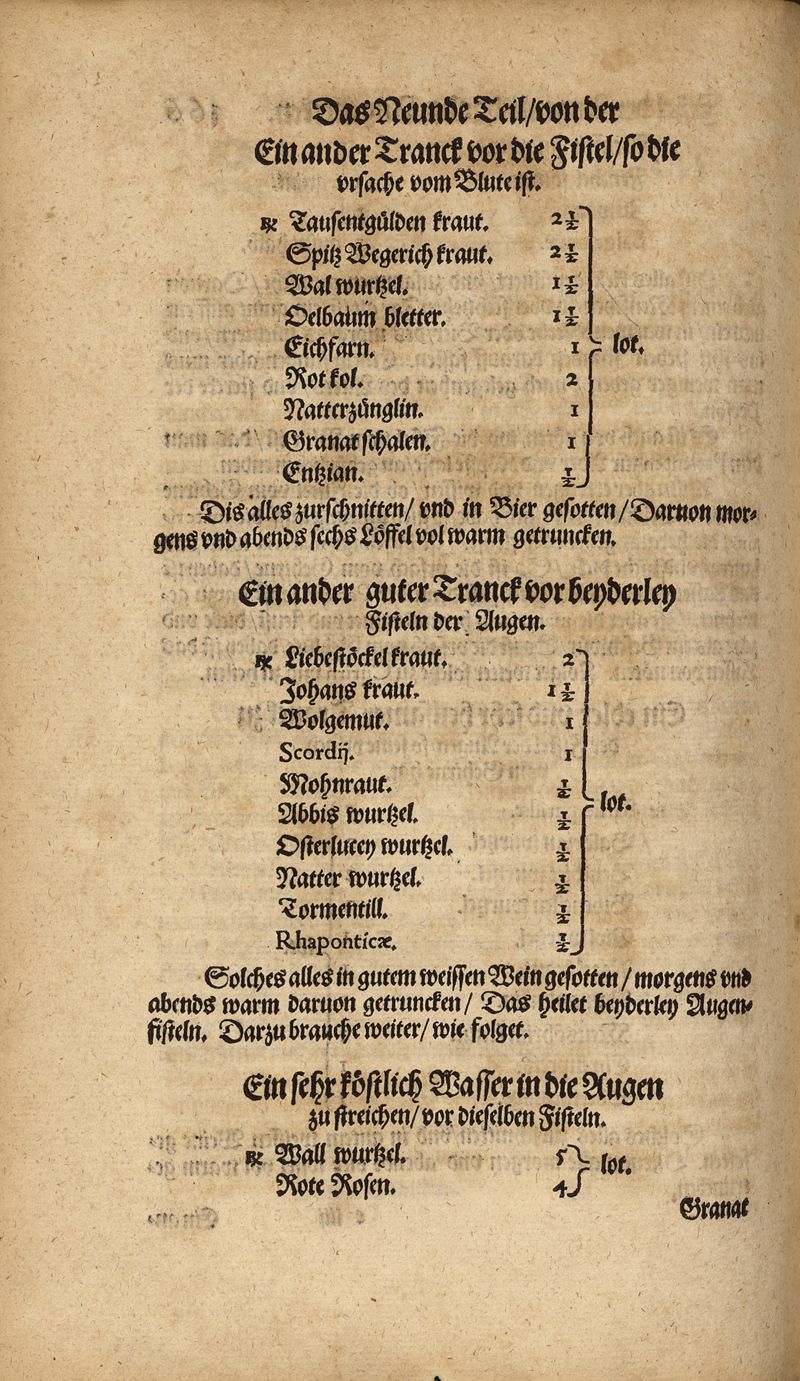 Das Neunde Teil/von der
Ein ander Tranck vor die Fistel/so die
vrsache vom Blute ist.
℞ Tausentgülden kraut. 2½
Spitz Wegerich kraut. 2½
Wal wurtzel. 1½
Oelbaum bletter. 1½
Eichfarn. 1 lot.
Rot kol. 2
Natterzünglin. 1
Granat schalen. 1
Entzian. ½
Dis alles zurschnitten/ vnd in Bier gesotten/Daruon mor-
gens vnd abends sechs Löffel vol warm getruncken.
Ein ander guter Tranck vor beyderley
Fisteln der Augen.
℞ Liebestöckel kraut. 2
Johans kraut. 1½
Wolgemut. 1
Scordij. 1
Mohnraut. ½
Abbis wurtzel. ½ lot.
Osterlucey wurtzel. ½
Natter wurtzel. ½
Tormentill. ½
Rhaponticæ. ½
Solches alles in gutem weissen Wein gesotten/morgens vnd
abends warm daruon getruncken/ Das heilet beyderley Augen-
fisteln. Darzu brauche weiter/wie folget.
Ein sehr köstlich Wasser in die Augen
zu streichen/vor dieselben Fisteln.
℞ Wall wurtzel. 5 lot.
Rote Rosen. 4
Granat